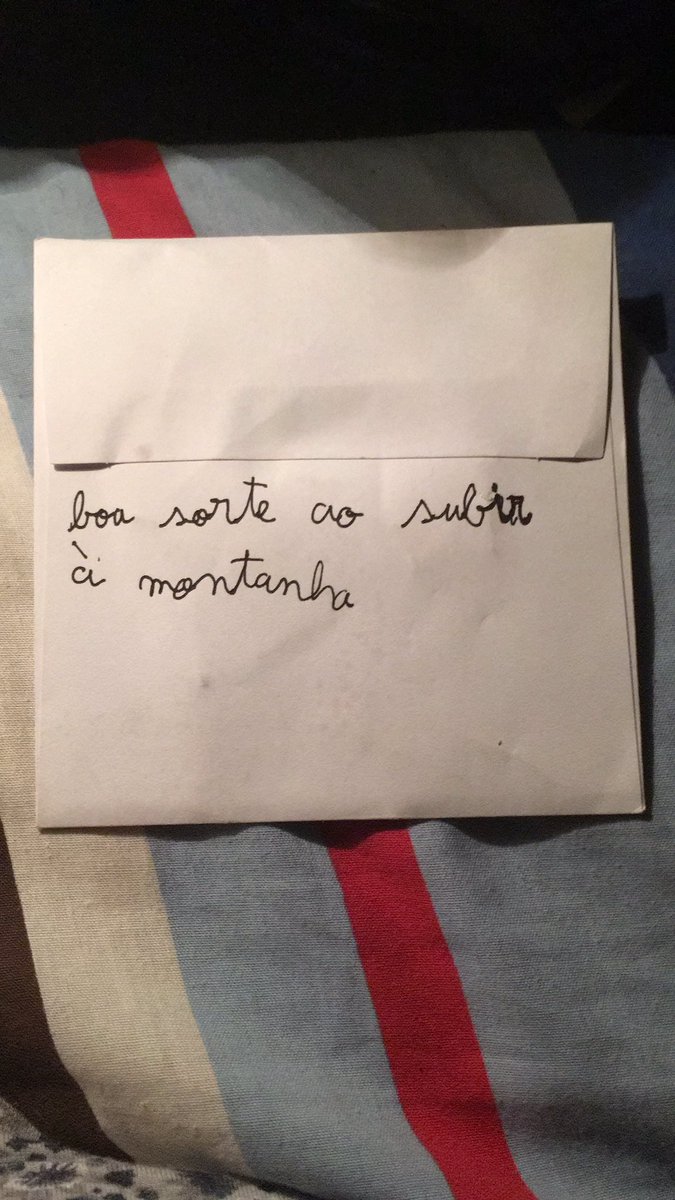 boa sorte ao subir
à montanha